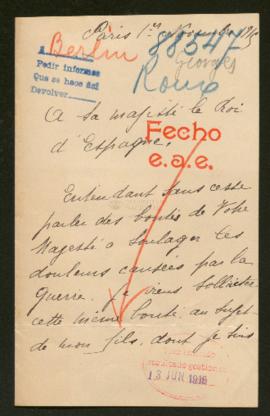 Paris 1er Novembre
Berlin
88547
Georges
Roux
Pedir informes
Que se hace así
Devolver
A sa majesté le Roi
d'Espagne,
Fecho
e.a.e.
Entendant sans cesse
parler des bontés de Votre
Majesté à soulager les
douleurs causées par la
guerre. Je viens solliciter
cette même bonté, au sujet
de mon fils, dont je suis
13 JUN 1918